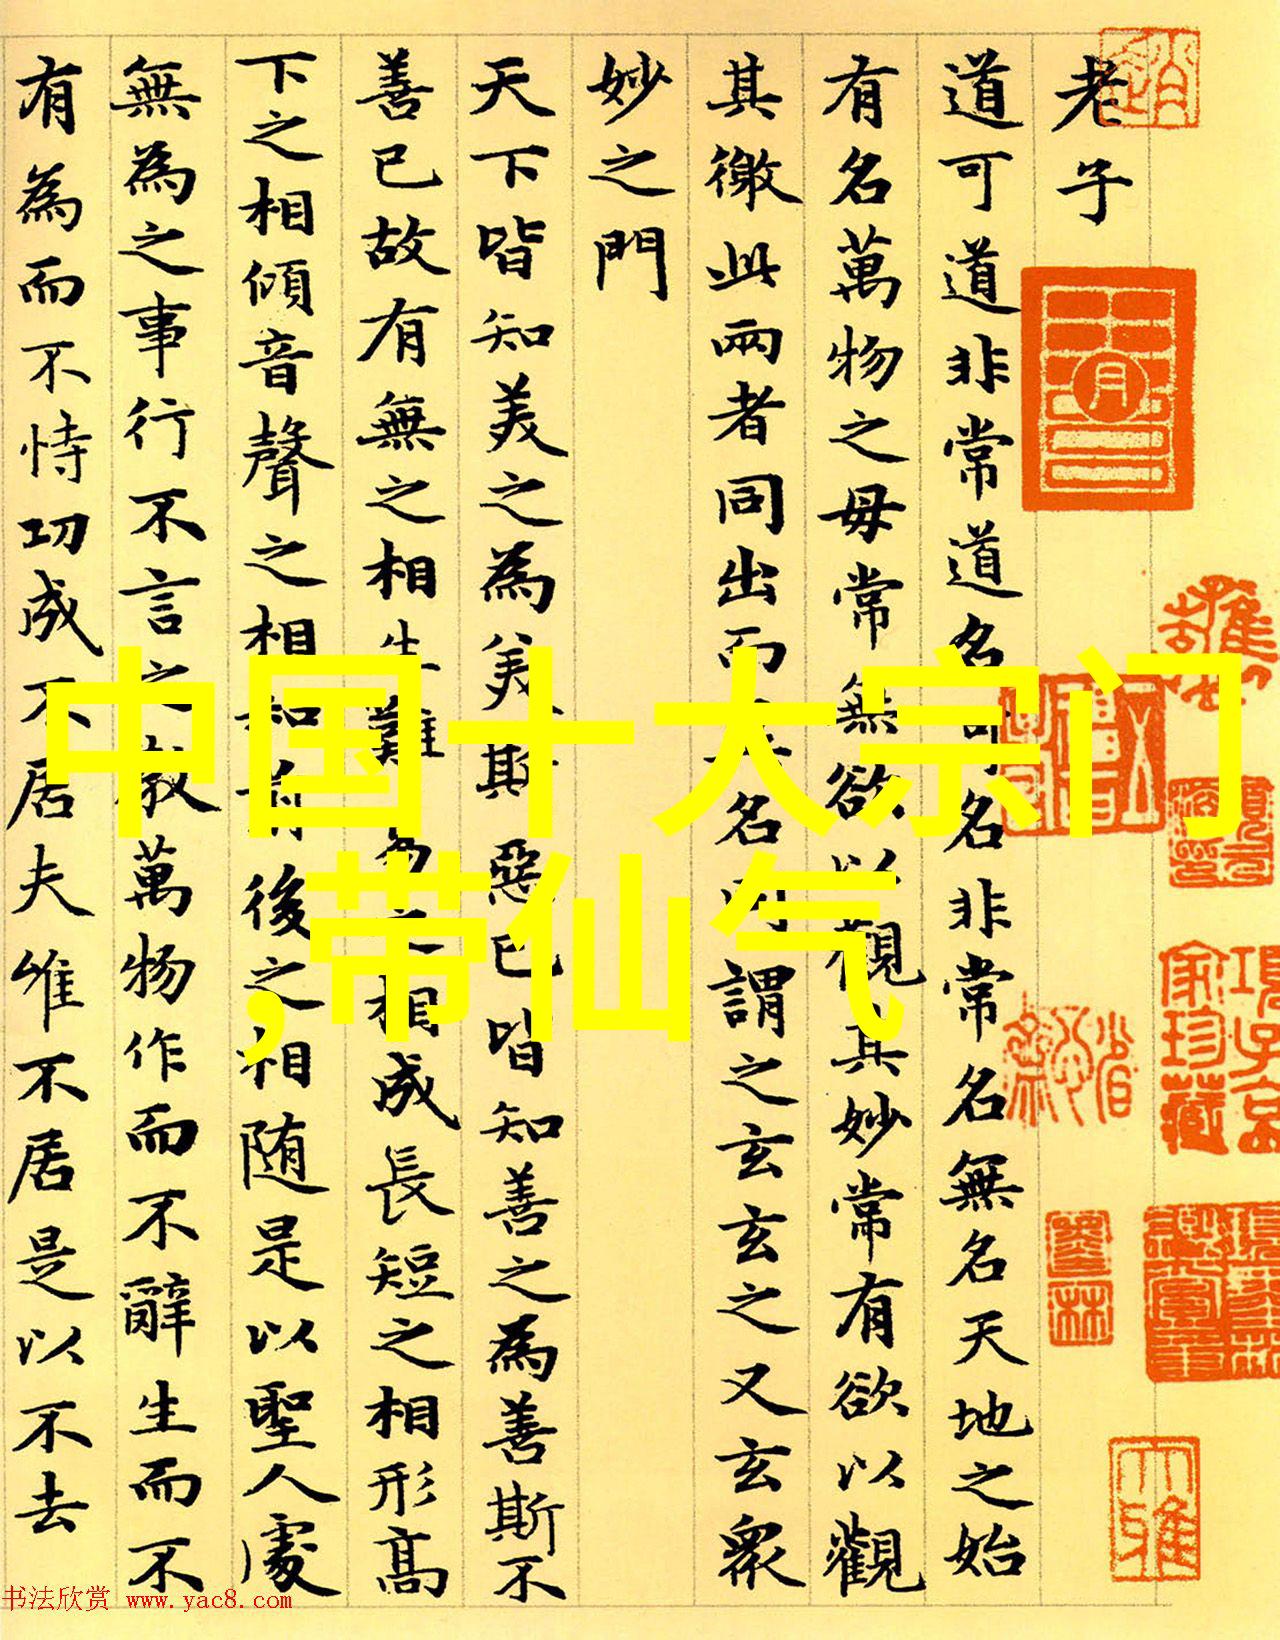 老子
道可道非常道名可名非常名無名天地之始
有名萬物之母常無欲以觀其妙常有欲以觀
其徼此兩者同出而異名同謂之玄玄之又玄衆
妙之門
天下皆知美之為美斯惡已皆知善之為善斯不
善已故有無之相生難易之相成長短之相形高
下之相傾音聲之相和前後之相随是以聖人處
無為之事行不言之教萬物作而不辭生而不
有為而不恃功成不居夫唯不居是以不去
中国十大宗门
,带仙气
項子京家珍藏
大雅
书法欣赏 www.yac8.com